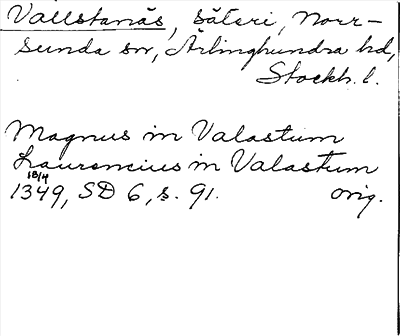 Vallstanäs, säteri, Norr-
sunda sn, Ärlinghundra hd,
Stockh. l.
Magnus in Valastum
Laurencius in Valastum
18/4
1349, SD 6, s. 91. orig.